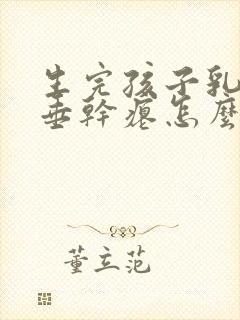 生完孩子乳
垂幹瘪怎麼
董立范